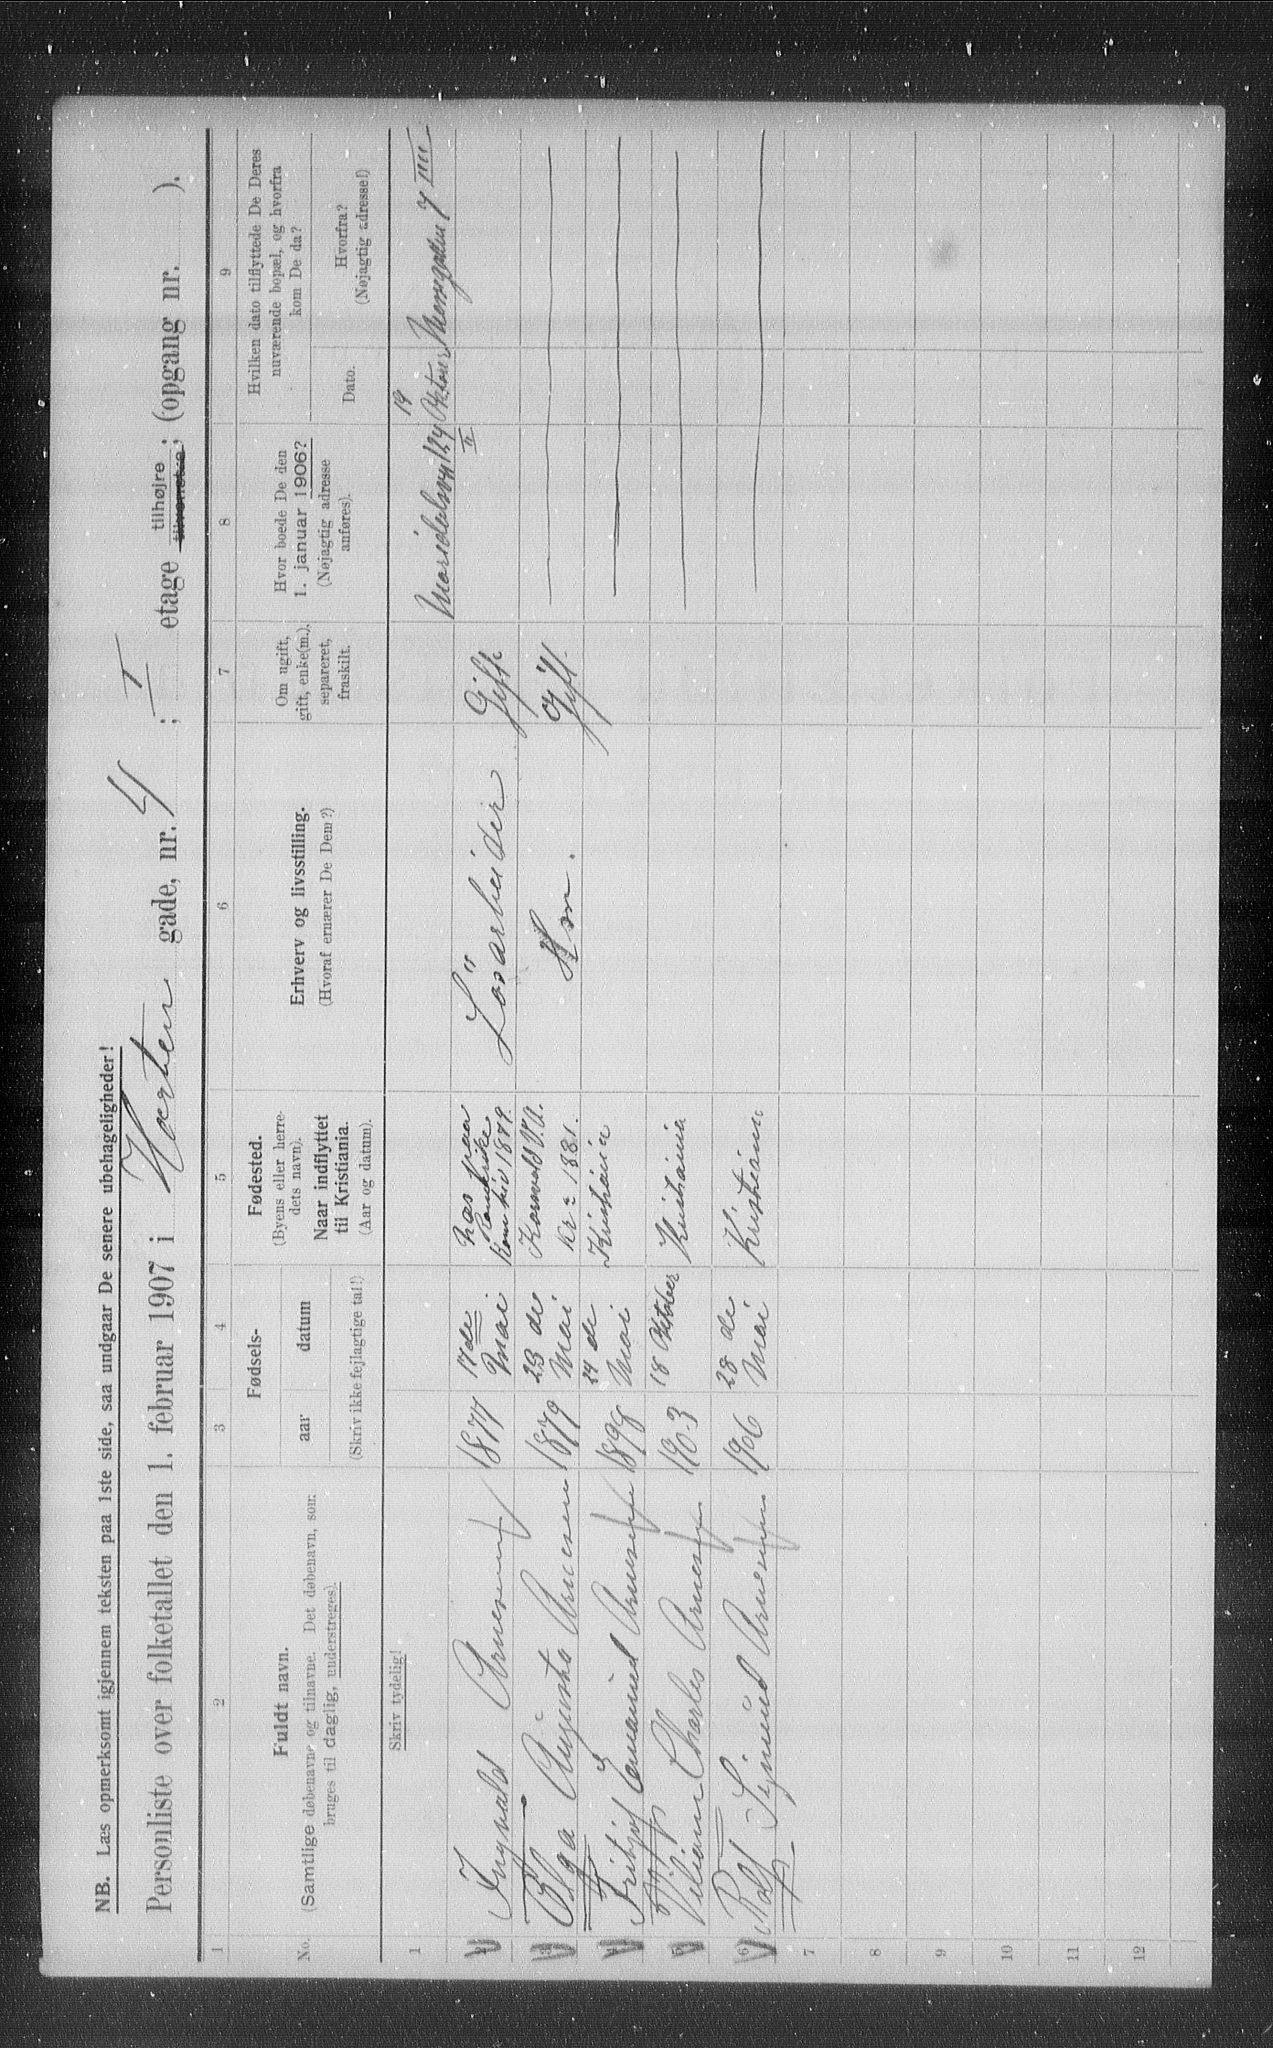 NB. Læs opmerksomt igjennem teksten paa 1ste side, saa undgaar De senere ubehageligheder!
Personliste over folketallet den 1. februar 1907 i Horten gade, nr. 4 ; I etage tilhøjre tilvenstre; (opgang nr. ).
1 2 3 4 5 6 7 8 9
No.
Fuldt navn.
(Samtlige døbenavne og tilnavne. Det døbenavn, som
bruges til daglig, understreges).
Fødsels-
aar datum
(Skriv ikke fejlagtige tal!)
Fødested.
(Byens eller herre-
dets navn).
Naar indflyttet
til Kristiania.
(Aar og datum).
Erhverv og livsstilling.
(Hvoraf ernærer De Dem?)
Om ugift,
gift, enke(m.),
separeret,
fraskilt.
Hvor boede De den
1. januar 1906?
(Nøjagtig adresse
anføres).
Hvilken dato tilflyttede De Deres
nuværende bopæl, og hvorfra
kom De da?
Dato.
Hvorfra?
(Nøjagtig adresse!)
Skriv tydelig!
1 Maridalsvn 124 II 14 Oktober 7 IIII
2 Ingvald Arnesen 1877 17de Mai Næs paa Romerike Kom hid 1879. Lösarbeider Gift
3 Olga Augusta Arnesen 1879 23 de Mai V.A. Kr= 1881. Hm. Gift
4 Frithjof Emanuel Arnesen 1898 24 de Mai Kristiania
5 Viliam Charles Arnesen 1903 18 Oktober Kristiania
6 Rolf Sigmund Arnesen 1906 28 de Mai Kristiania
7
8
9
10
11
12